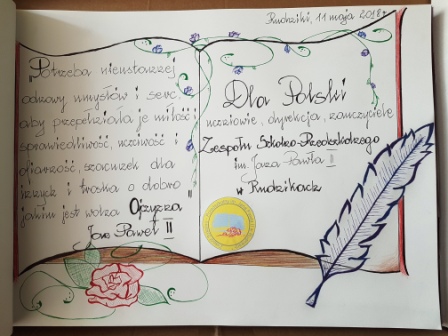 Rudziki, 11 maja 2018r.
"Potrzeba nieustannej
odnowy umysłów i serc,
aby przepełniała je miłość i
sprawiedliwość, uczciwość i
ofiarność, szacunek dla
innych i troska o dobro
jakim jest wolna Ojczyzna"
Jan Paweł II
Dla Polski
uczniowie, dyrekcja, nauczyciele
Zespołu Szkolno-Przedszkolnego
im. Jana Pawła II
w Rudzikach